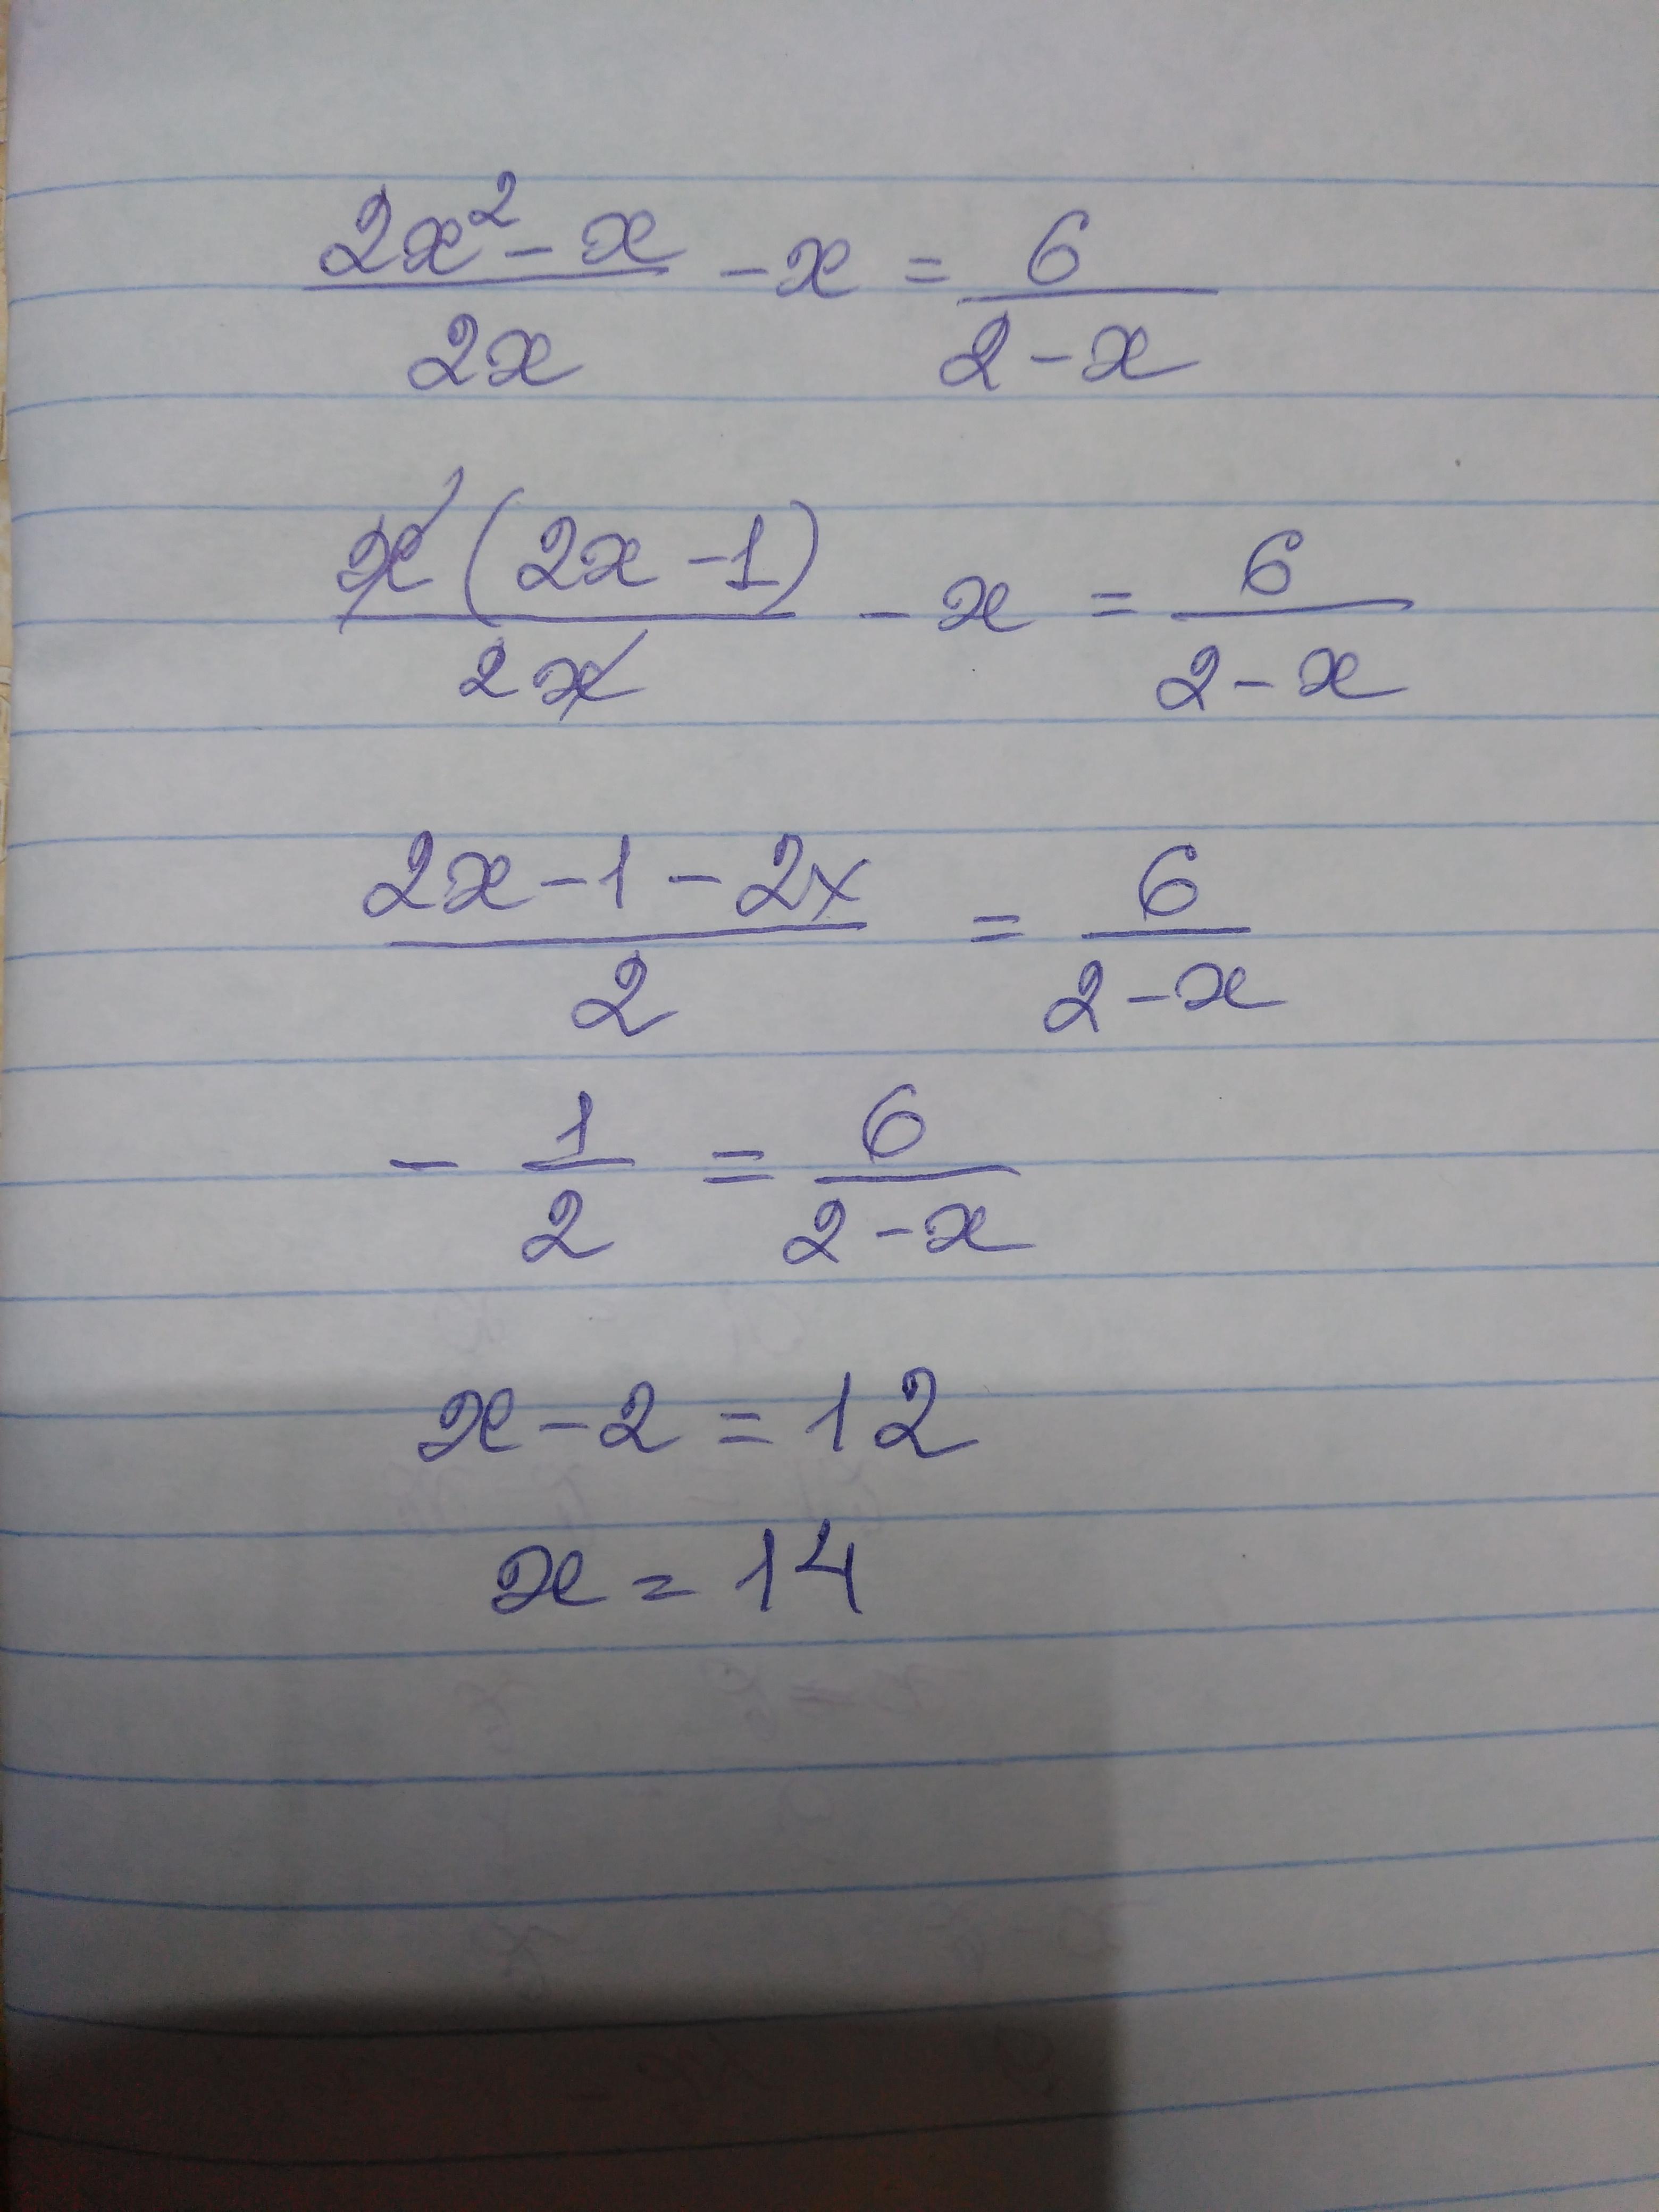 (2x² - x)/(2x) - x = 6/(2 - x)
x(2x - 1)/(2x) - x = 6/(2 - x)
(2x - 1 - 2x)/2 = 6/(2 - x)
- 1/2 = 6/(2 - x)
x - 2 = 12
x = 14